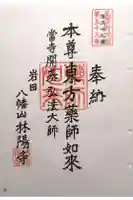 奉納
本尊東方薬師如来
當寺開基弘法大師
岩田
八幡山林陽寺